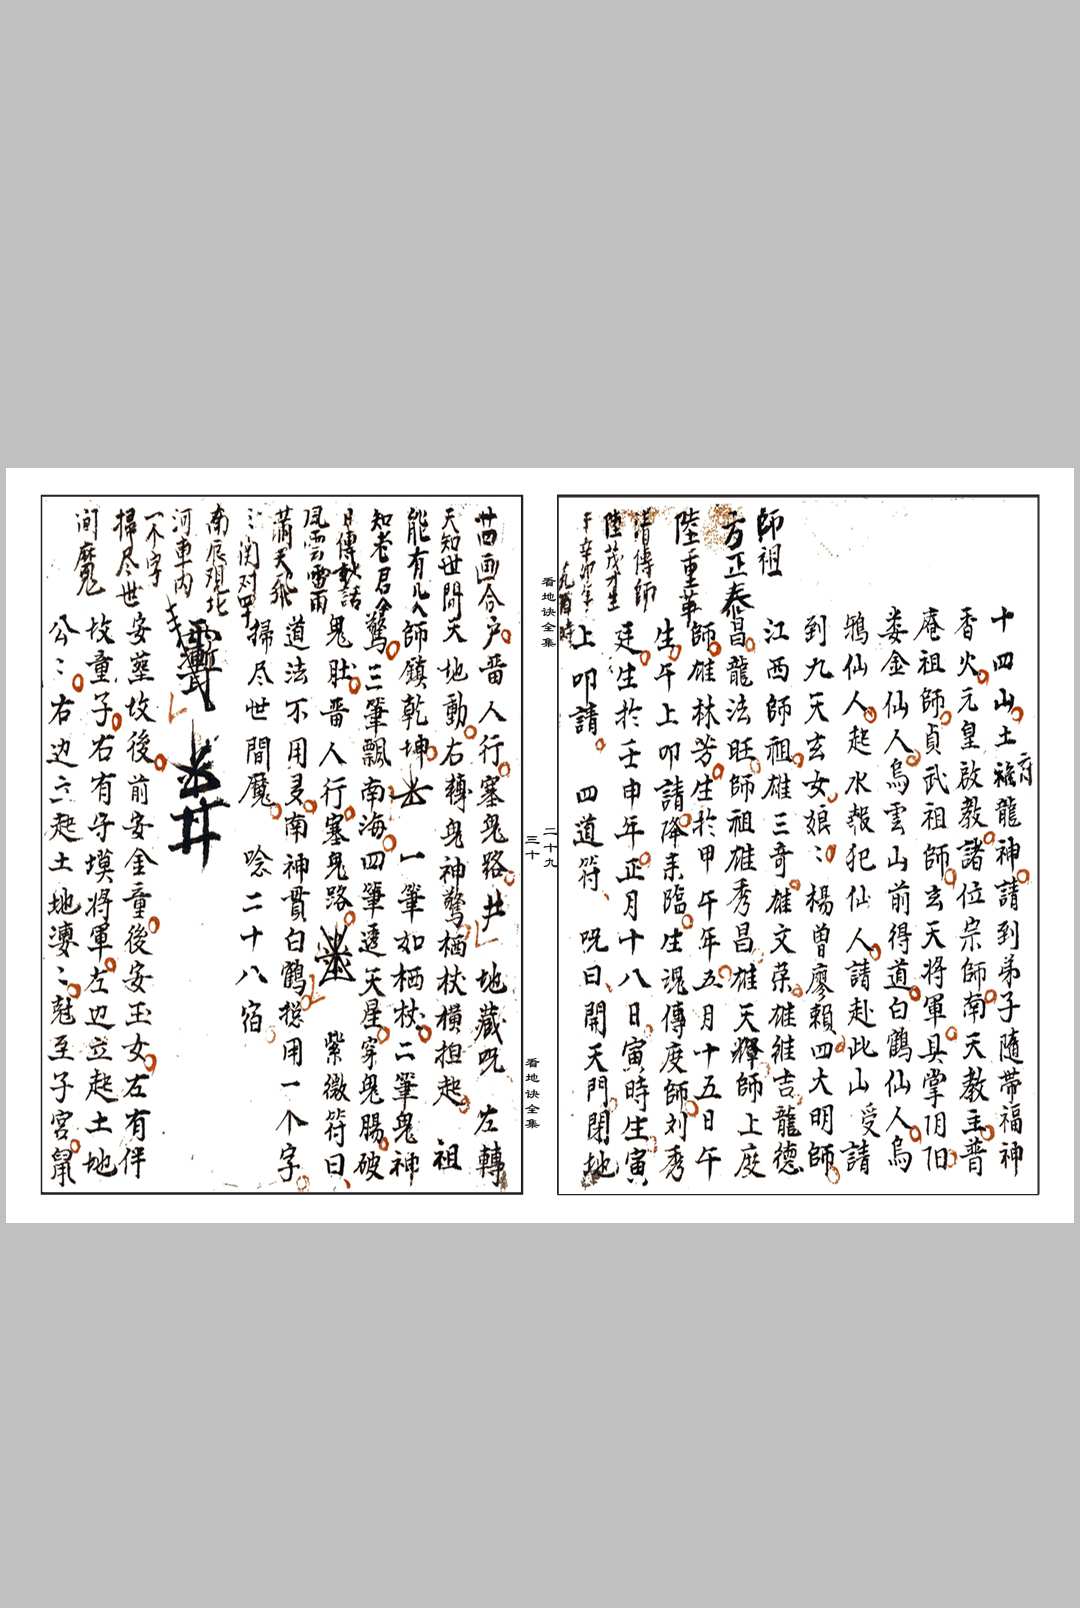 十四山土龍神請到弟子隨帶福神
府
香火元皇啟教諸位宗師南天教主普
庵祖師貞武祖師玄天將軍具掌阴阳
娄金仙人烏雲山前得道白鶴仙人烏
鴉仙人起水報犯仙人請赴此山受請
到九天玄女娘〻楊曾廖賴四大明師
江西師祖雄三奇雄文荣雄維吉龍德
師祖
方正泰
昌龍法旺師祖雄秀昌雄天輝師上度
陸重華
師雄林芳生於甲午年五月十五日午
生午上叩請降來臨生混傳度師刘秀
請傳師
陸茂才生
廷生於壬申年正月十八日寅時生寅
于辛卯年
九酉時
上叩請 四道符 呪曰開天門閉地
看地诀全集
二十九
廿四画合
户番人行塞鬼路井 地藏呪 左轉
天知世間
天地動右轉鬼神驚栖杖橫担起 祖
能有几人
師鎮乾坤 一筆如栖杖二筆鬼神
知老君令
驚三筆飄南海四筆遶天星穿鬼腸破
日傳敕話
鬼肚番人行塞鬼路 紫微符曰
風雲雷雨
道法不用多南神貫白鶴搃用一个字
蕭天飛
掃尽世間魔 唸二十八宿
〻関对四
南辰观北
河車内
一个字
掃尽世
间魔
安塟坟後前安金童後安玉女左有伴
坟童子右有守墳將軍左边立起土地
公〻右边六起土地婆〻尅至子宮鼠
三十
看地诀全集